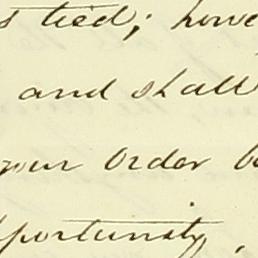 tied; howe
and shall
your Order b
portunity,